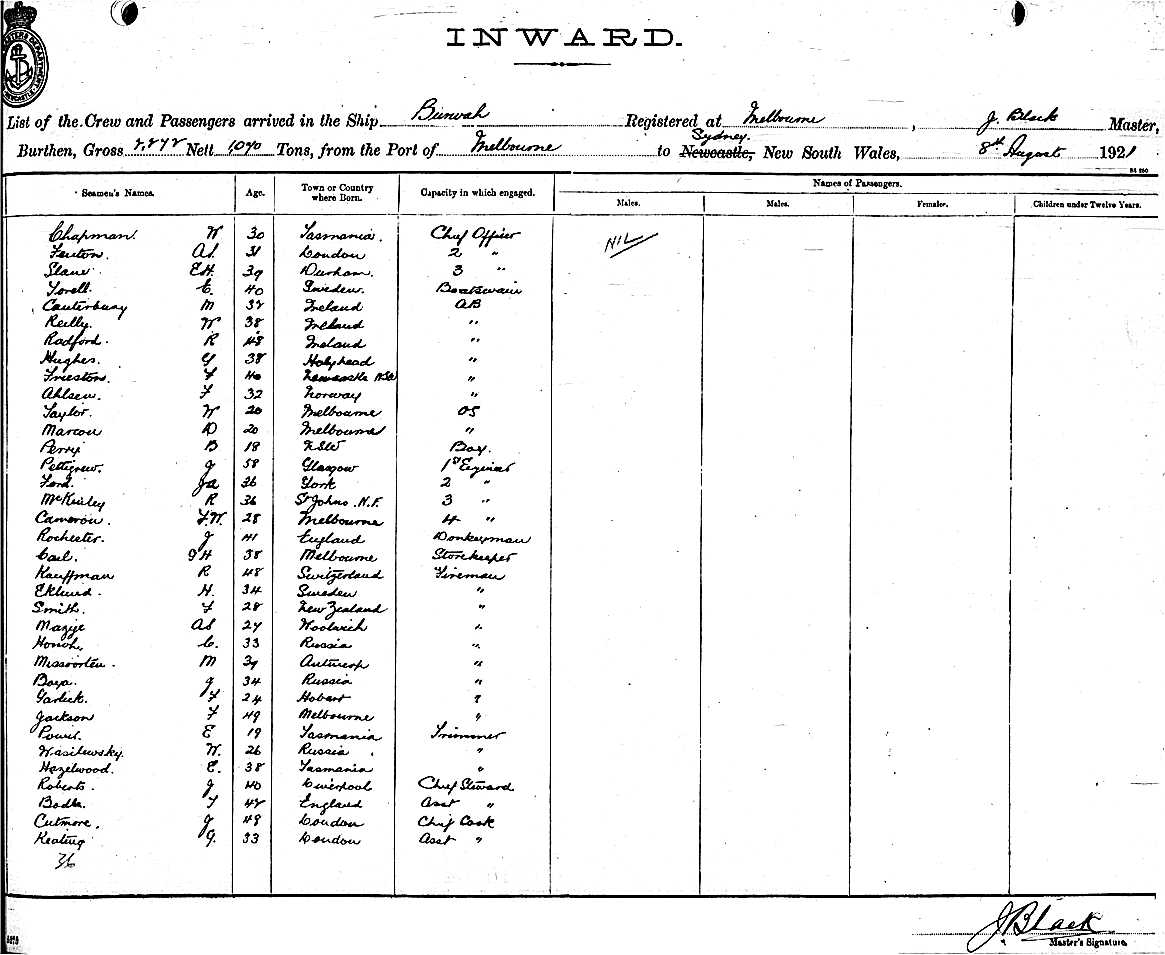 INWARD.
List of the Crew and Passengers arrived in the Ship Birwah Registered at Melbourne, J. Black Master,
Burthen, Gross Nett 1,070 Tons, from the Port of Melbourne to Sydney. Newcastle, New South Wales, 8th August 1921
Seamen's Names. Age. Town or Country where Born. Capacity in which engaged. Names of Passengers.
Males. Males. Female. Children under Twelve Years.
Chapman. W 30 Tasmania. Chief Officer NIL
Fenton. 31 London 2 "
Slane EH. 39 Durham. 3 "
C. 40 Sweden. Boatswain
Canterbury M Ireland AB
Reilly. W 38 Ireland "
Radford. R 48 Ireland "
Hughes. G 38 Holyhead "
Frieston. F 40 Newcastle NSW "
Ahlsen. F 32 Norway "
Taylor. W 20 Melbourne OS
Marcou D 20 Melbourne "
Perry B 18 NSW Boy.
Pettigrew. J 58 Glasgow 1st Engineer
Ford. JA 36 York 2 "
McKinley R 36 St Johns. N.F. 3 "
Cameron. F.W. 28 Melbourne 4 "
Rochester. J 41 England Donkeyman
Cail. 38 Melbourne Storekeeper
Kauffman R 48 Switzerland Fireman
Eklund. H. 34 Sweden "
Smith. F 28 New Zealand "
AS 27 Woolwich "
C. 33 Russia "
Missorten. M Antwerp "
J 34 Russia "
Garlick. F 24 Hobart "
Jackson F 49 Melbourne "
E 19 Tasmania Trimmer
Wasilewsky. W. 26 Russia. "
Hazelwood. E. 38 Tasmania "
Roberts. J 40 Liverpool Chief Steward
F England Asst "
Cutmore. J 48 London Chief Cook
Keating J. 33 London Asst "
36
J Black
Master's Signature.